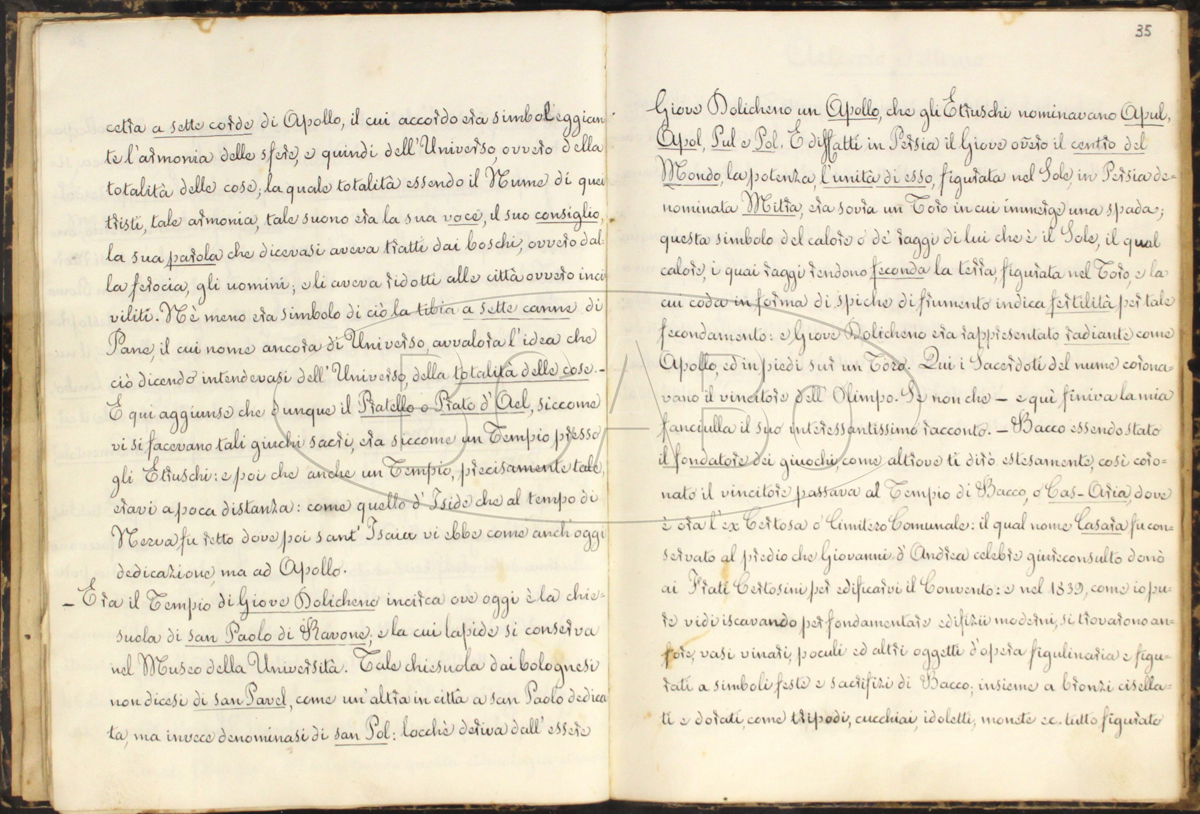 cetra a sette corde di Apollo, il cui accordo era simboleggian
te l'armonia delle sfere, e quindi dell'Universo, ovvero della
totalità delle cose; la quale totalità essendo il Nume di quei
tristi, tale armonia, tale suono era la sua voce, il suo consiglio,
la sua parola che dicevasi aveva tratti dai boschi, ovvero dal-
la ferocia, gli uomini; e li aveva ridotti alle città ovvero inci
viliti. Nè meno era simbolo di ciò la tibia a sette canne di
Pane, il cui nome ancora di Universo, avvalora l'idea che
ciò dicendo intendevasi dell'Universo, della totalità delle cose. –
E qui aggiunse che dunque il Pratello o Prato d'Ael, siccome
vi si facevano tali giuochi sacri, era siccome un Tempio presso
gli Etruschi: e poi che anche un Tempio, precisamente tale,
eravi a poca distanza: come quello d'Iside che al tempo di
Nerva fu retto dove poi sant'Isaia vi ebbe come anch'oggi
dedicazione, ma ad Apollo.
– Era il Tempio di Giove Dolicheno incirca ove oggi è la chie=
suola di san Paolo di Ravone; e la cui lapide si conserva
nel Museo della Università. Tale chiesuola dai bolognesi
non dicesi di san Pavel, come un'altra in città a san Paolo dedica
ta, ma invece denominasi di san Pol: locchè deriva dall'essere
35
Giove Dolicheno un Apollo, che gli Etruschi nominavano Apul,
Apol, Pul e Pol. E diffatti in Persia il Giove ovvero il centro del
Mondo, la potenza, l'unità di esso, figurata nel Sole, in Persia de=
nominata Mitra, era sovra un Toro in cui immerge una spada;
questa simbolo del calore o de' raggi di lui che è il Sole, il qual
calore, i quai raggi rendono feconda la terra, figurata nel Toro, e la
cui coda in forma di spiche di frumento indica fertilità per tale
fecondamento: e Giove Dolicheno era rappresentato radiante come
Apollo, ed in piedi sur un Toro. Qui i Sacerdoti del nume corona=
vano il vincitore dell'Olimpo. Se non che – e quì finiva la mia
fanciulla il suo interessantissimo racconto. – Bacco essendo stato
il fondatore dei giuochi, come altrove ti dirò estesamente, così coro=
nato il vincitore passava al Tempio di Bacco, o Cas-Aria, dove
è ora l'ex Certosa o Cimitero Comunale: il qual nome Casara fu con=
servato al predio che Giovanni d'Andrea celebre giureconsulto donò
ai Frati Certosini per edificarvi il Convento: e nel 1839, come io pu=
re vidi iscavando per fondamentare edifizii moderni, si trovarono an=
fore, vasi vinari, poculi ed altri oggetti d'opera figulinaria e figu=
rati a simboli feste e sacrifizi di Bacco; insieme a bronzi cisella=
ti e dorati, come tripodi, cucchiai, idoletti, monete ec. tutto figurato